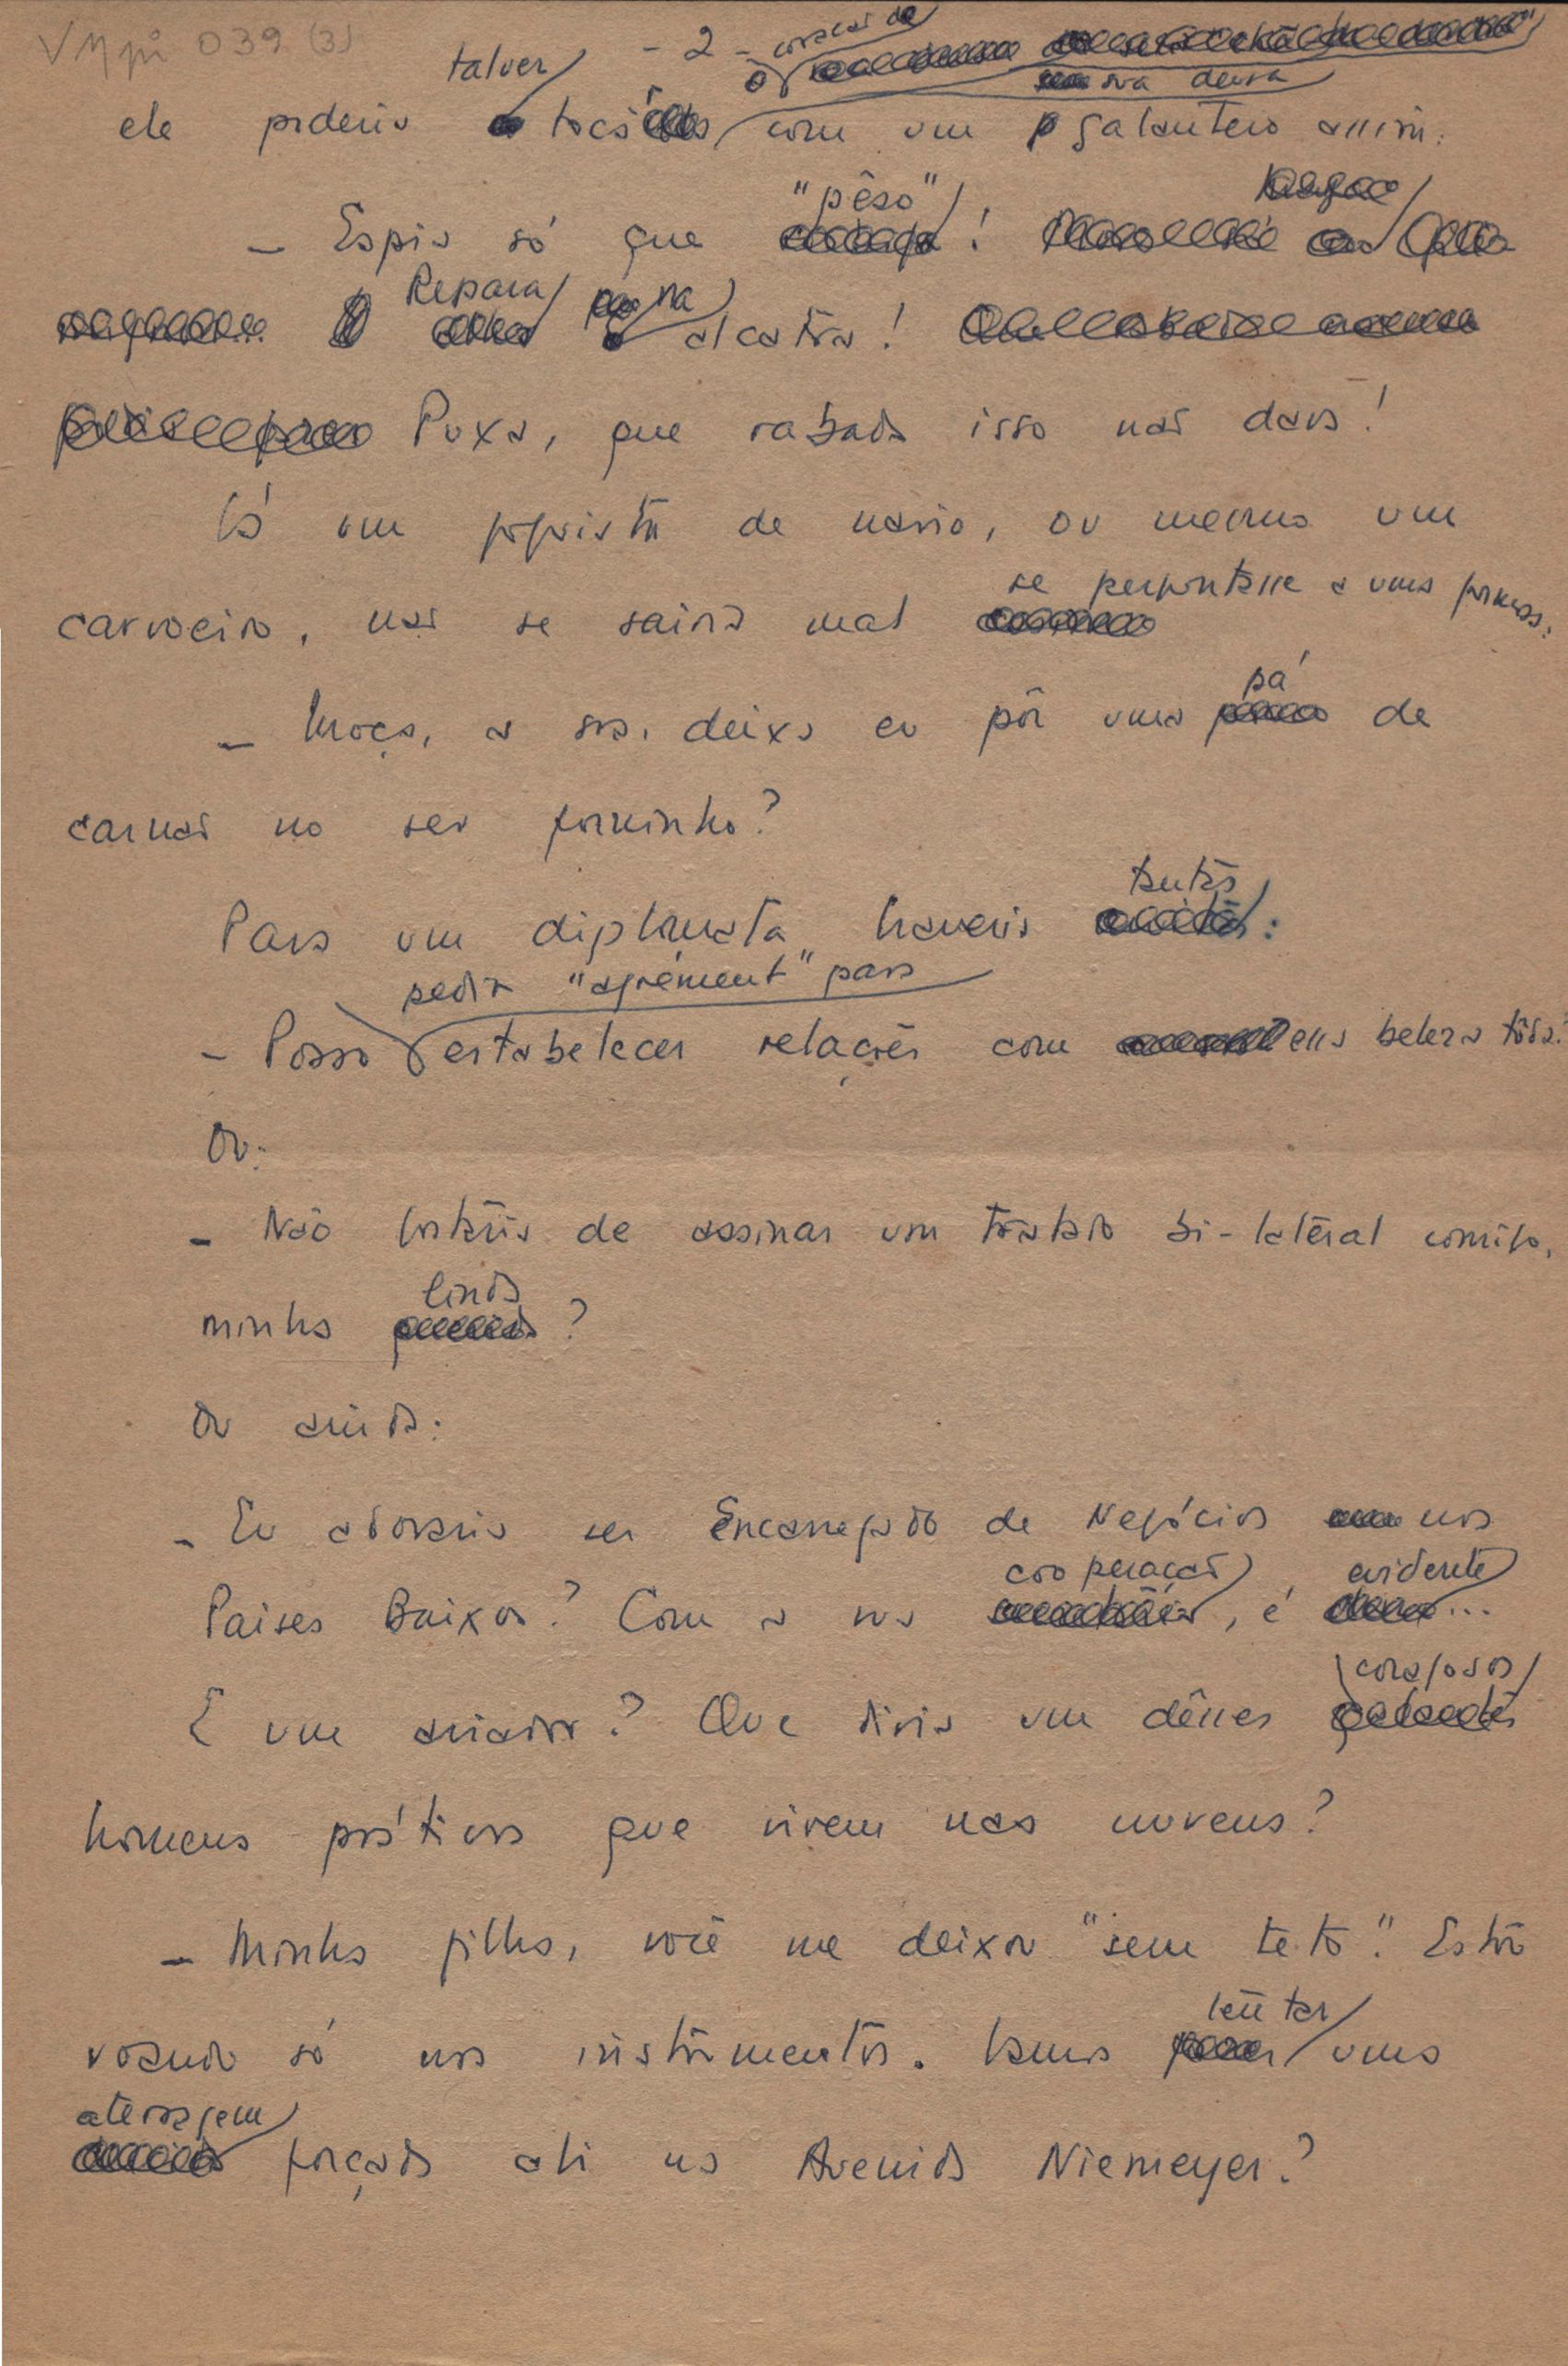 VMpi 039 (3)
- 2 -
talvez
coração de
sua deusa
ele poderia tocar o com um galanteio assim:
"pêso"
- Espia só que !
Repara na
alcatra!
Puxa, que rabada isso não dava!
Já um foguista de navio, ou mesmo um
se perguntasse a uma fornuda:
carvoeiro, não se sairia mal
pá
- Moça, a sra. deixa eu pôr uma de
carvão no seu forninho?
tantas
Para um diplomata, haveria :
pedir "agrément" para
- Posso estabelecer relações com essa beleza tôda?
Ou:
- Não gostaria de assinar um tratado bi-lateral comigo,
linda
minha ?
Ou ainda:
- Eu adoraria ser Encarregado de Negócios nos
cooperação evidente
Países Baixos? Com a sua , é ...
corajosos
E um aviador? Que diria um dêsses
homens práticos que vivem nas nuvens?
- Minha filha, você me deixou "sem teto". Estou
tentar
voando só nos instrumentos. Vamos uma
aterragem
forçada ali na Avenida Niemeyer?